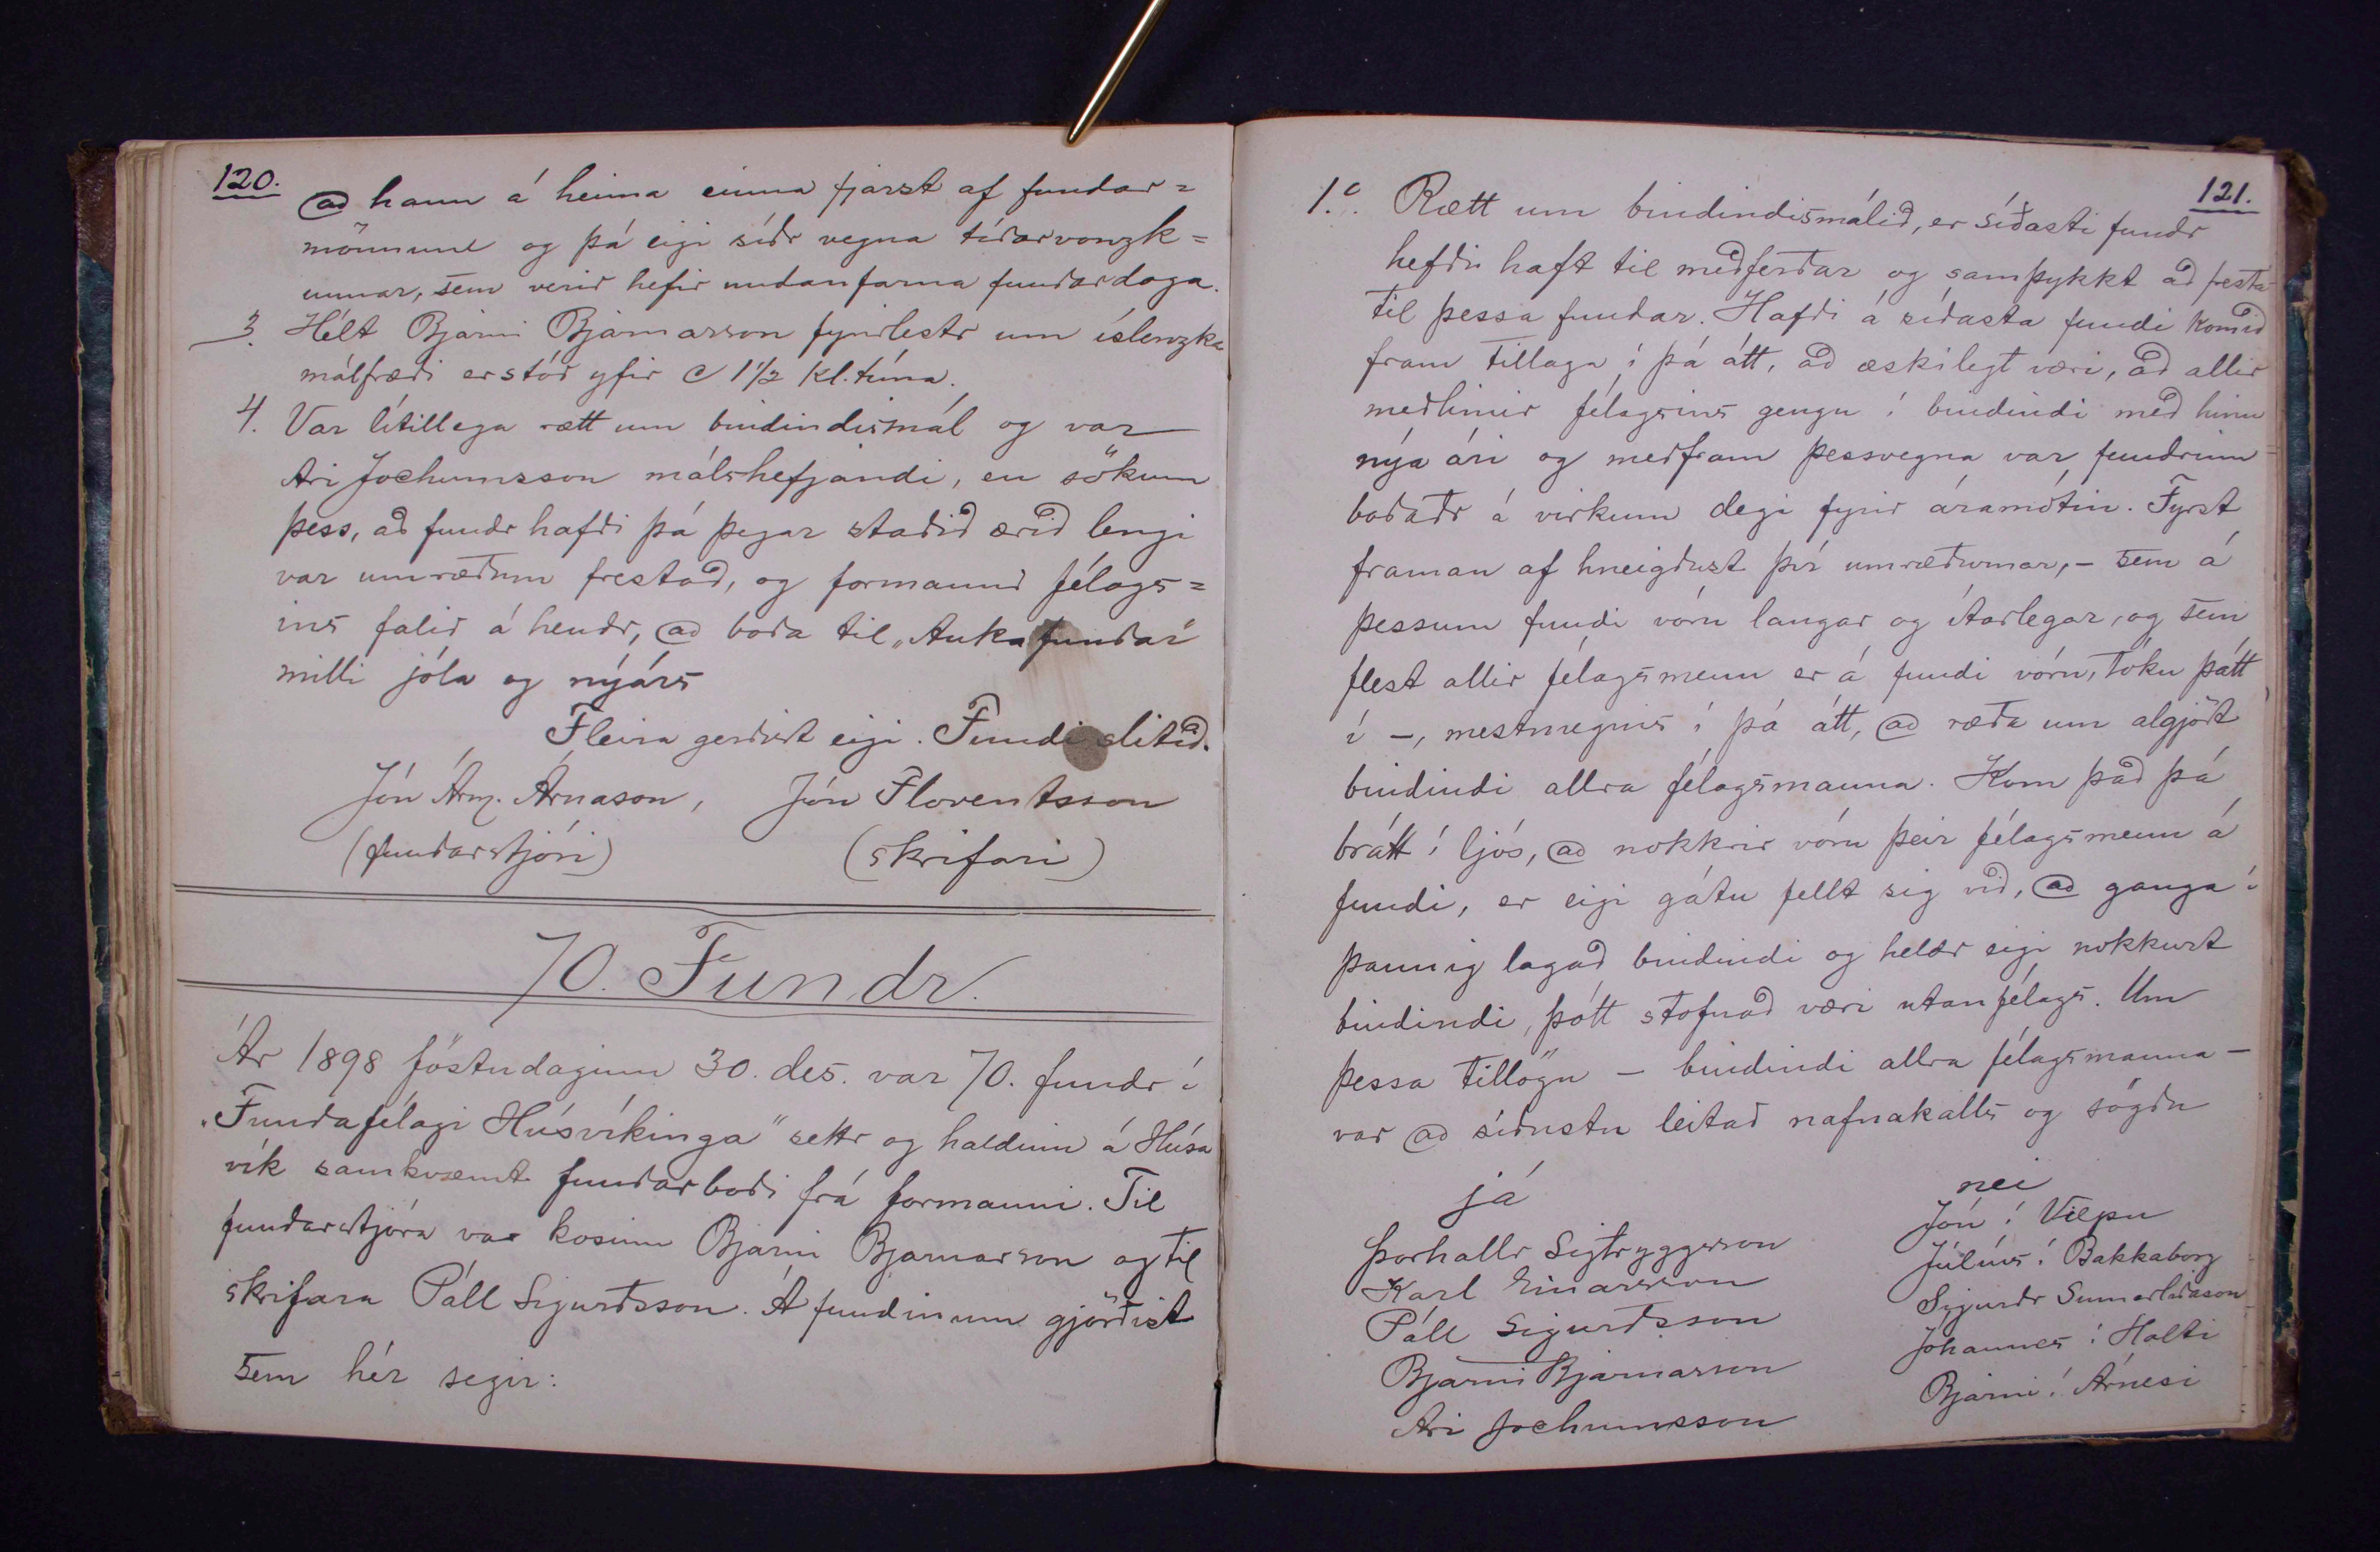 120.
að hann á heima einna fjarst af fundar=
mönnum og þá eigi síðr vegna tíðarvonzk=
unnar, sem verið hefir undanfarna fundardaga.
3. Hélt Bjarni Bjarnarson fyrirlestr um íslenzka
málfræði er stóð yfir c 1 1/2 kl.tíma.
4. Var lítillega rætt um bindindismál og var
Ari Jochumsson málshefjandi, en sökum
þess, að fundr hafði þá þegar staðið ærið lengi
var umræðum frestað, og formanni félags=
ins falið á hendr, að boða til „Aukafundar“
milli jóla og nýárs
Fleira gerðist eigi. Fundi slitið.
Jón Árm. Árnason, Jón Florentsson
(fundarstjóri) (skrifari)
70. Fundr.
Ár 1898 föstudaginn 30. des. var 70. fundr í
„Fundafélagi Húsvíkinga“ settr og haldinn á Húsa
vík samkvæmt fundarboði frá formanni. Til
fundarstjóra var kosinn Bjarni Bjarnarson og til
skrifara Páll Sigurðsson. Á fundinum gjörðist
sem hér segir:
121.
1.o Rætt um bindindismálið, er síðasti fundr
hefði haft til meðferðar og samþykkt að fresta
til þessa fundar. Hafði á síðasta fundi komið
fram tillaga í þá átt, að æskilegt væri, að allir
meðlimir félagsins gengu í bindindi með hinu
nýa ári og meðfram þessvegna var fundrinn
boðaðr á virkum degi fyrir áramótin. Fyrst
framan af hneigðust því umræðurnar, – sem á
þessum fundi vóru langar og ítarlegar, og sem
flest allir félagsmenn er á fundi vóru, tóku þátt
í –, mestmegnis í þá átt, að ræða um algjört
bindindi allra félagsmanna. Kom það þá
brátt í ljós, að nokkrir vóru þeir félagsmenn á
fundi, er eigi gátu fellt sig við, að ganga í
þannig lagað bindindi og heldr eigi nokkurt
bindindi, þótt stofnað væri utanfélags. Um
þessa tillögu – bindindi allra félagsmanna –
var að síðustu leitað nafnakalls og sögðu
já nei
Þorhallr Sigtryggsson Jón í Vilpu
Karl Einarsson Júlíus í Bakkaborg
Páll Sigurðsson Sigurðr Sumarliðason
Bjarni Bjarnarson Jóhannes í Holti
Ari Jochumsson Bjarni í Árnesi